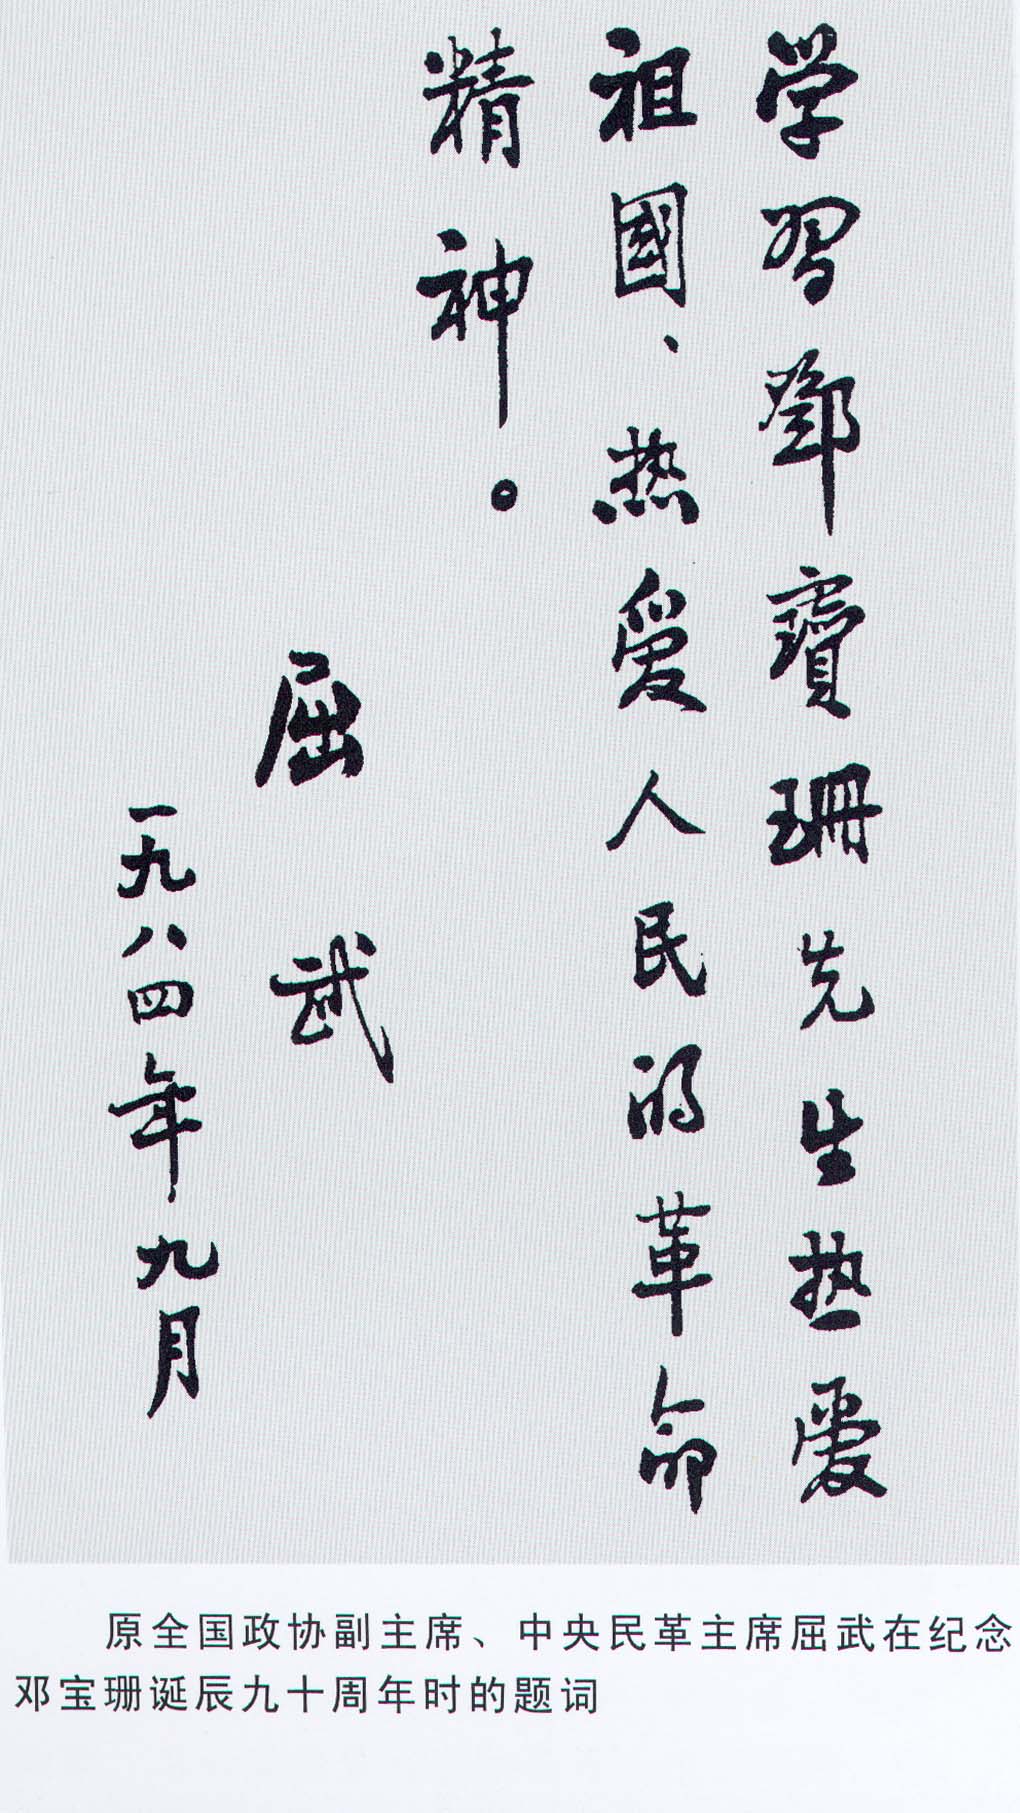 学习鄧寳珊先生热爱
祖國、热爱人民的革命
精神。
屈武
一九八四年九月
原全国政协副主席、中央民革主席屈武在纪念
邓宝珊诞辰九十周年时的题词